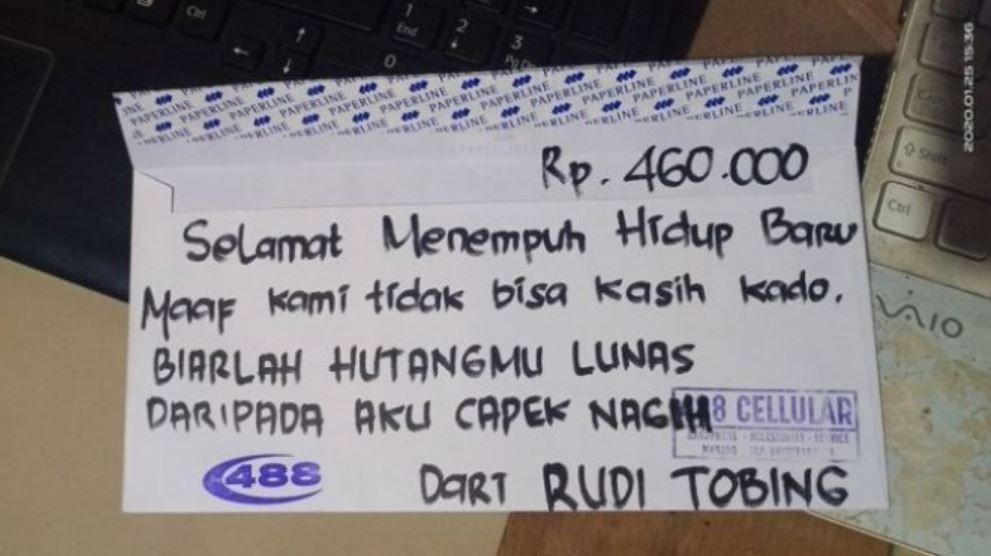 Ctrl
1
End
2
3
0
2020.01.25 15:36
PAPERLINE PAPERLINE PAPERLINE PAPERLINE PAPERLINE
Shift
Ctrl
Rp. 460.000
Selamat Menempuh Hidup Baru
Maaf kami tidak bisa kasih kado.
BIARLAH HUTANGMU LUNAS
DARIPADA AKU CAPEK NAGIH
8 CELLULAR
ACCESSORIES - SERVICE
488
Dari RUDI TOBING
VAIO